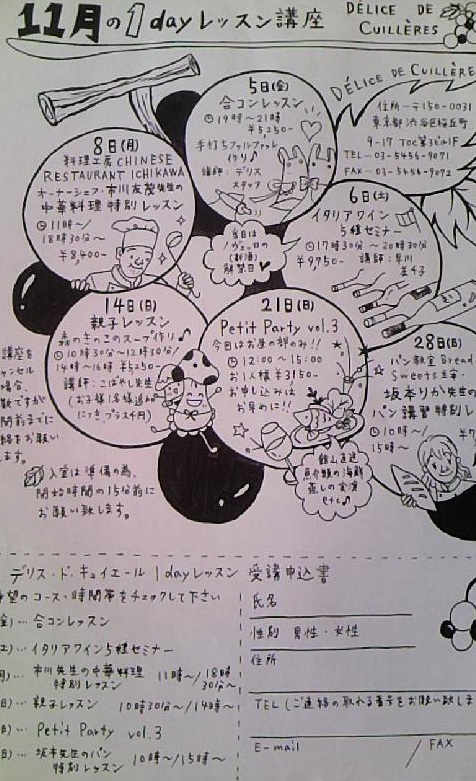 11月の1dayレッスン講座
DÉLICE DE
CUILLÈRES
DÉLICE DE CUILLÈRE
住所-〒150-0031
東京都渋谷区桜丘町
9-17 TOC第3ビル1F
TEL--03-5456-9071
FAX--03-5456-9072
5日(金)
合コンレッスン
19時〜21時
¥5250-
手打ちファルファッレ
作り♪
講師：デリス
スタッフ
8日(月)
料理工房CHINESE
RESTAURANT ICHIKAWA
オーナーシェフ・市川友茂先生の
中華料理 特別レッスン
11時〜/
18時30分〜
¥8,400-
6日(土)
イタリアワイン
5種セミナー
17時30分〜20時30分
¥9,750- 講師：早川
当日は
ノヴェッロの
(新酒)
解禁日
14日(日)
親子レッスン
森のきのこのスープ作り♪
10時30分〜12時30分/
14時〜16時 ¥5250-
講師：こばやし先生
(お子様1名様追加
につき、プラス千円)
21日(日)
Petit Party vol.3
今日はお昼の部のみ!!
12:00〜15:00
お1人様 ¥3150-
お申し込みは
お早めに!!
館山直送
魚介類の海鮮
蒸しの実演
etc♪
28日(日)
パン教室 Bread
Sweets主宰
坂本りか先生の
パン講習 特別レ
10時/
15時〜
¥7
講座を
ャンセル
場合、
数ですが
間前までに
絡をお願い
します。
入室は準備の為、
開始時間の15分前に
お願い致します。
デリス・ド・キュイエール 1dayレッスン 受講申込書
希望のコース・時間帯をチェックして下さい
金)…合コンレッスン
土)…イタリアワイン5種セミナー
月)…市川先生の中華料理 特別レッスン 11時〜/18時30分〜
日)…親子レッスン 10時30分〜/14時〜
日)…Petit Party vol.3
日)…坂本先生のパン 特別レッスン 10時〜/15時〜
氏名
性別 男性・女性
住所
TEL(ご連絡の取れる番号をお願い致しま
E-mail / FAX